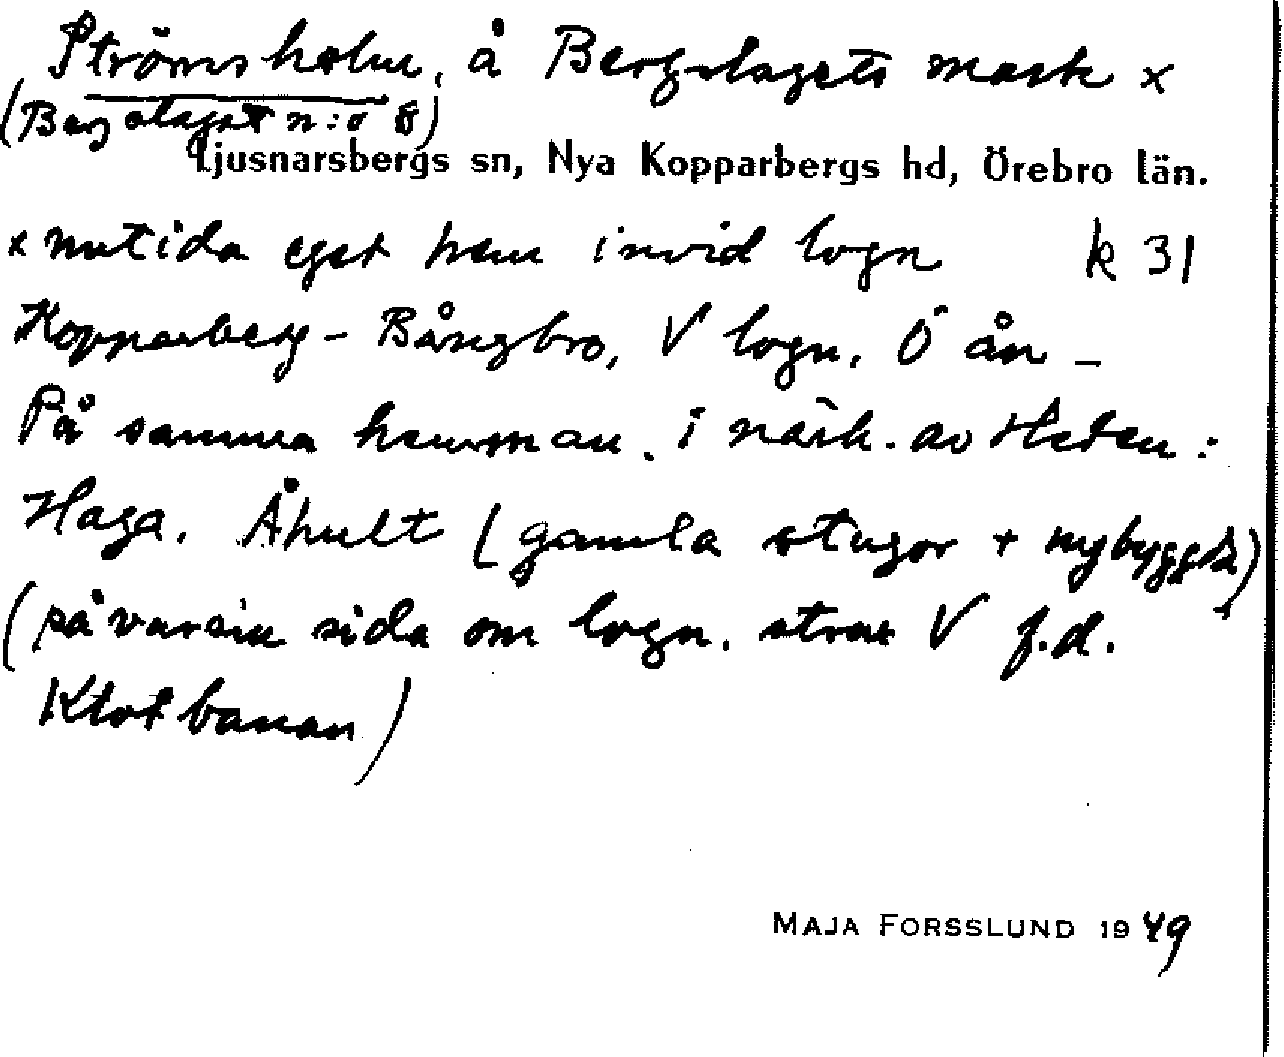 Strömsholm, å Bergslagets mark x
(Bergslaget n:o 8)
Ljusnarsbergs sn, Nya Kopparbergs hd, Örebro län.
x nutida eget hem invid lvgn k 31
Kopparberg - Bångbro, V lvgn, Ö ån -
På samma hemman. i närh. av Heden:
Haga, Åhult (gamla stugor + nybyggda)
(på varsin sida om lvgn. strax V f.d.
Klotbanan)
MAJA FORSSLUND 1949